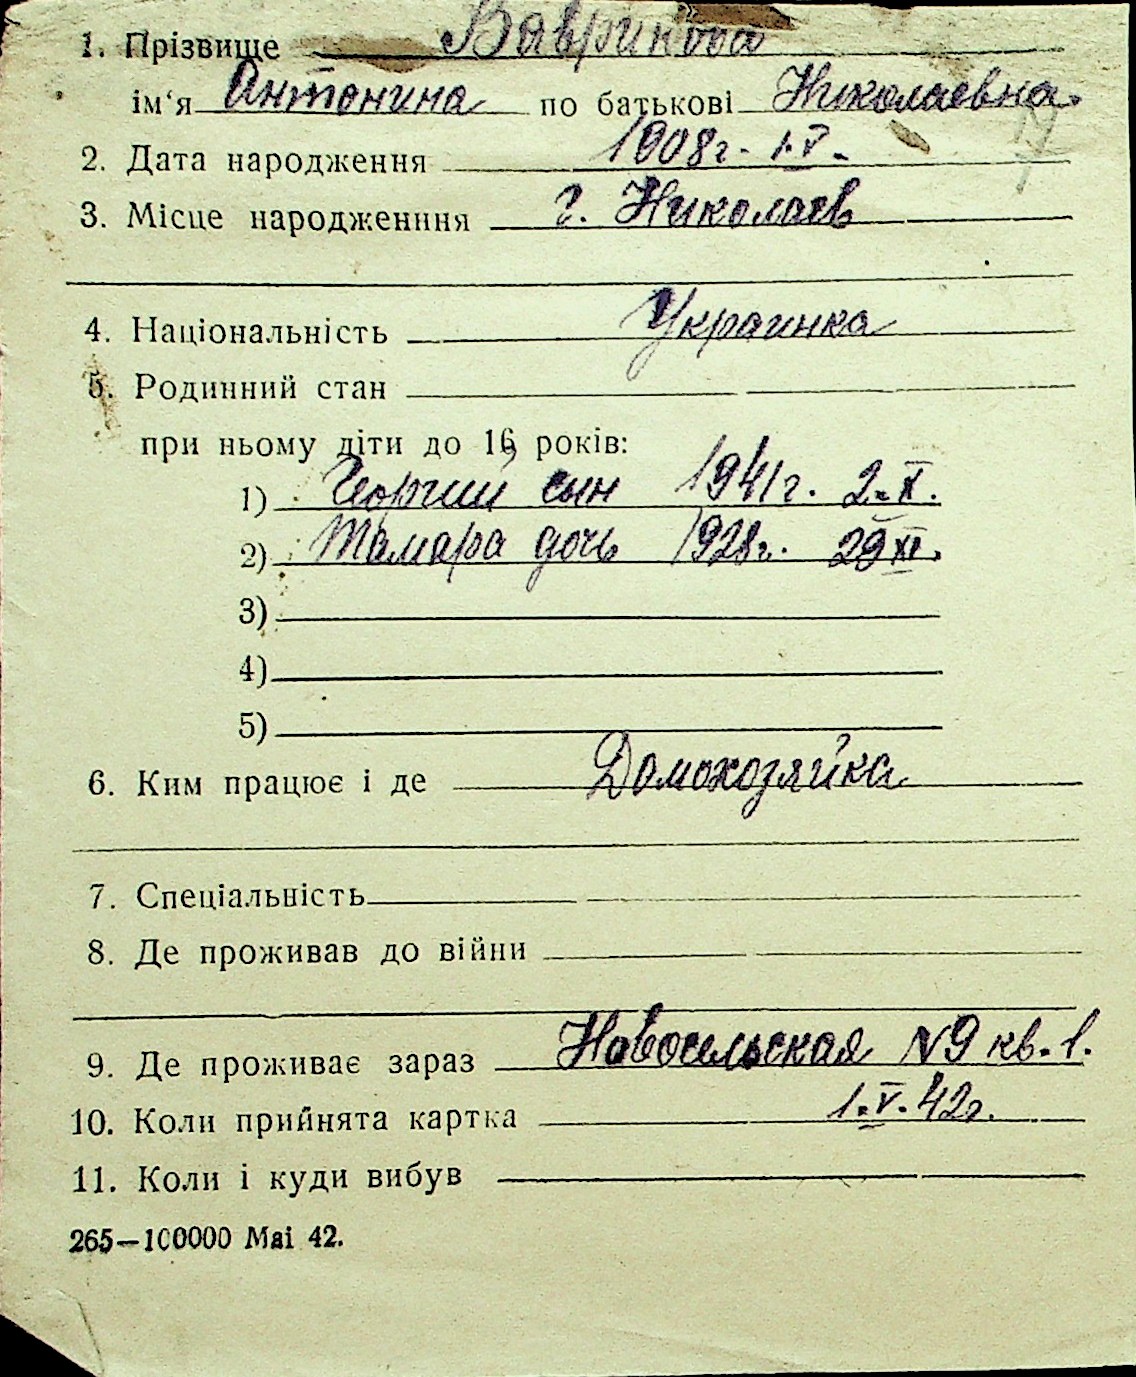 1. Прізвище Вавринова
ім‘я Антонина по батькові Николаевна
2. Дата народження 1908г. 1.V.
3. Місце народженння г. Николаев
4. Національність Украинка
5. Родинний стан
при ньому діти до 16 років:
1) Георгий сын 1941г. 2.X.
2) Тамара дочь 1928г. 29 XI.
3)
4)
5)
6. Ким працює і де Домохозяйка
7. Спеціальність
8. Де проживав до війни
9. Де проживає зараз Новосельская № 9 кв. 1.
10. Коли прийнята картка 1.V.42г.
11. Коли і куди вибув
265—100000 Mai 42.